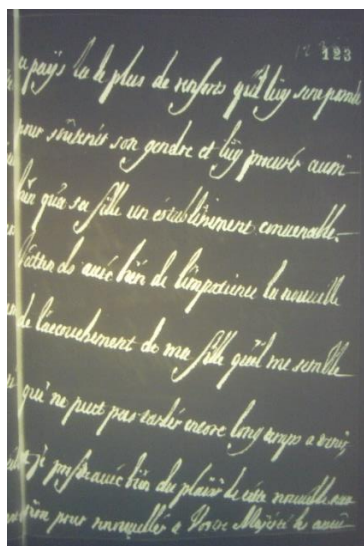 123
ce païs la le plus de renforts qu'il luy sera possible
pour soutenir son gendre et luy procurer aussi
bien qu'a sa fille un établissement convenable.
J'attendo avec bien de l'impatience la nouvelle
de l'accouchement de ma fille qu'il me semble
qui ne peut pas tarder encore long temps a venir,
et je profite avec bien du plaisir de cette nouvelle
pour renouveller a Vostre Majesté les